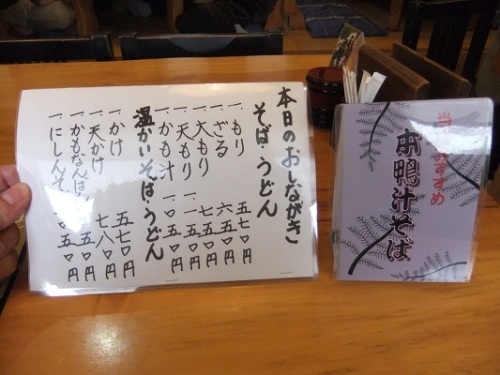 本日のおしながき
そば・うどん
一、もり 五七〇円
一、ざる 六五〇円
一、大もり 七五〇円
一、天もり 一、一五〇円
一、かも汁 一、〇五〇円
温かいそば・うどん
一、かけ 五七〇円
一、天かけ 七八〇円
一、かもなんばん 一、〇五〇円
一、にしんそば 一、〇五〇円
おすすめ
本鴨汁そば